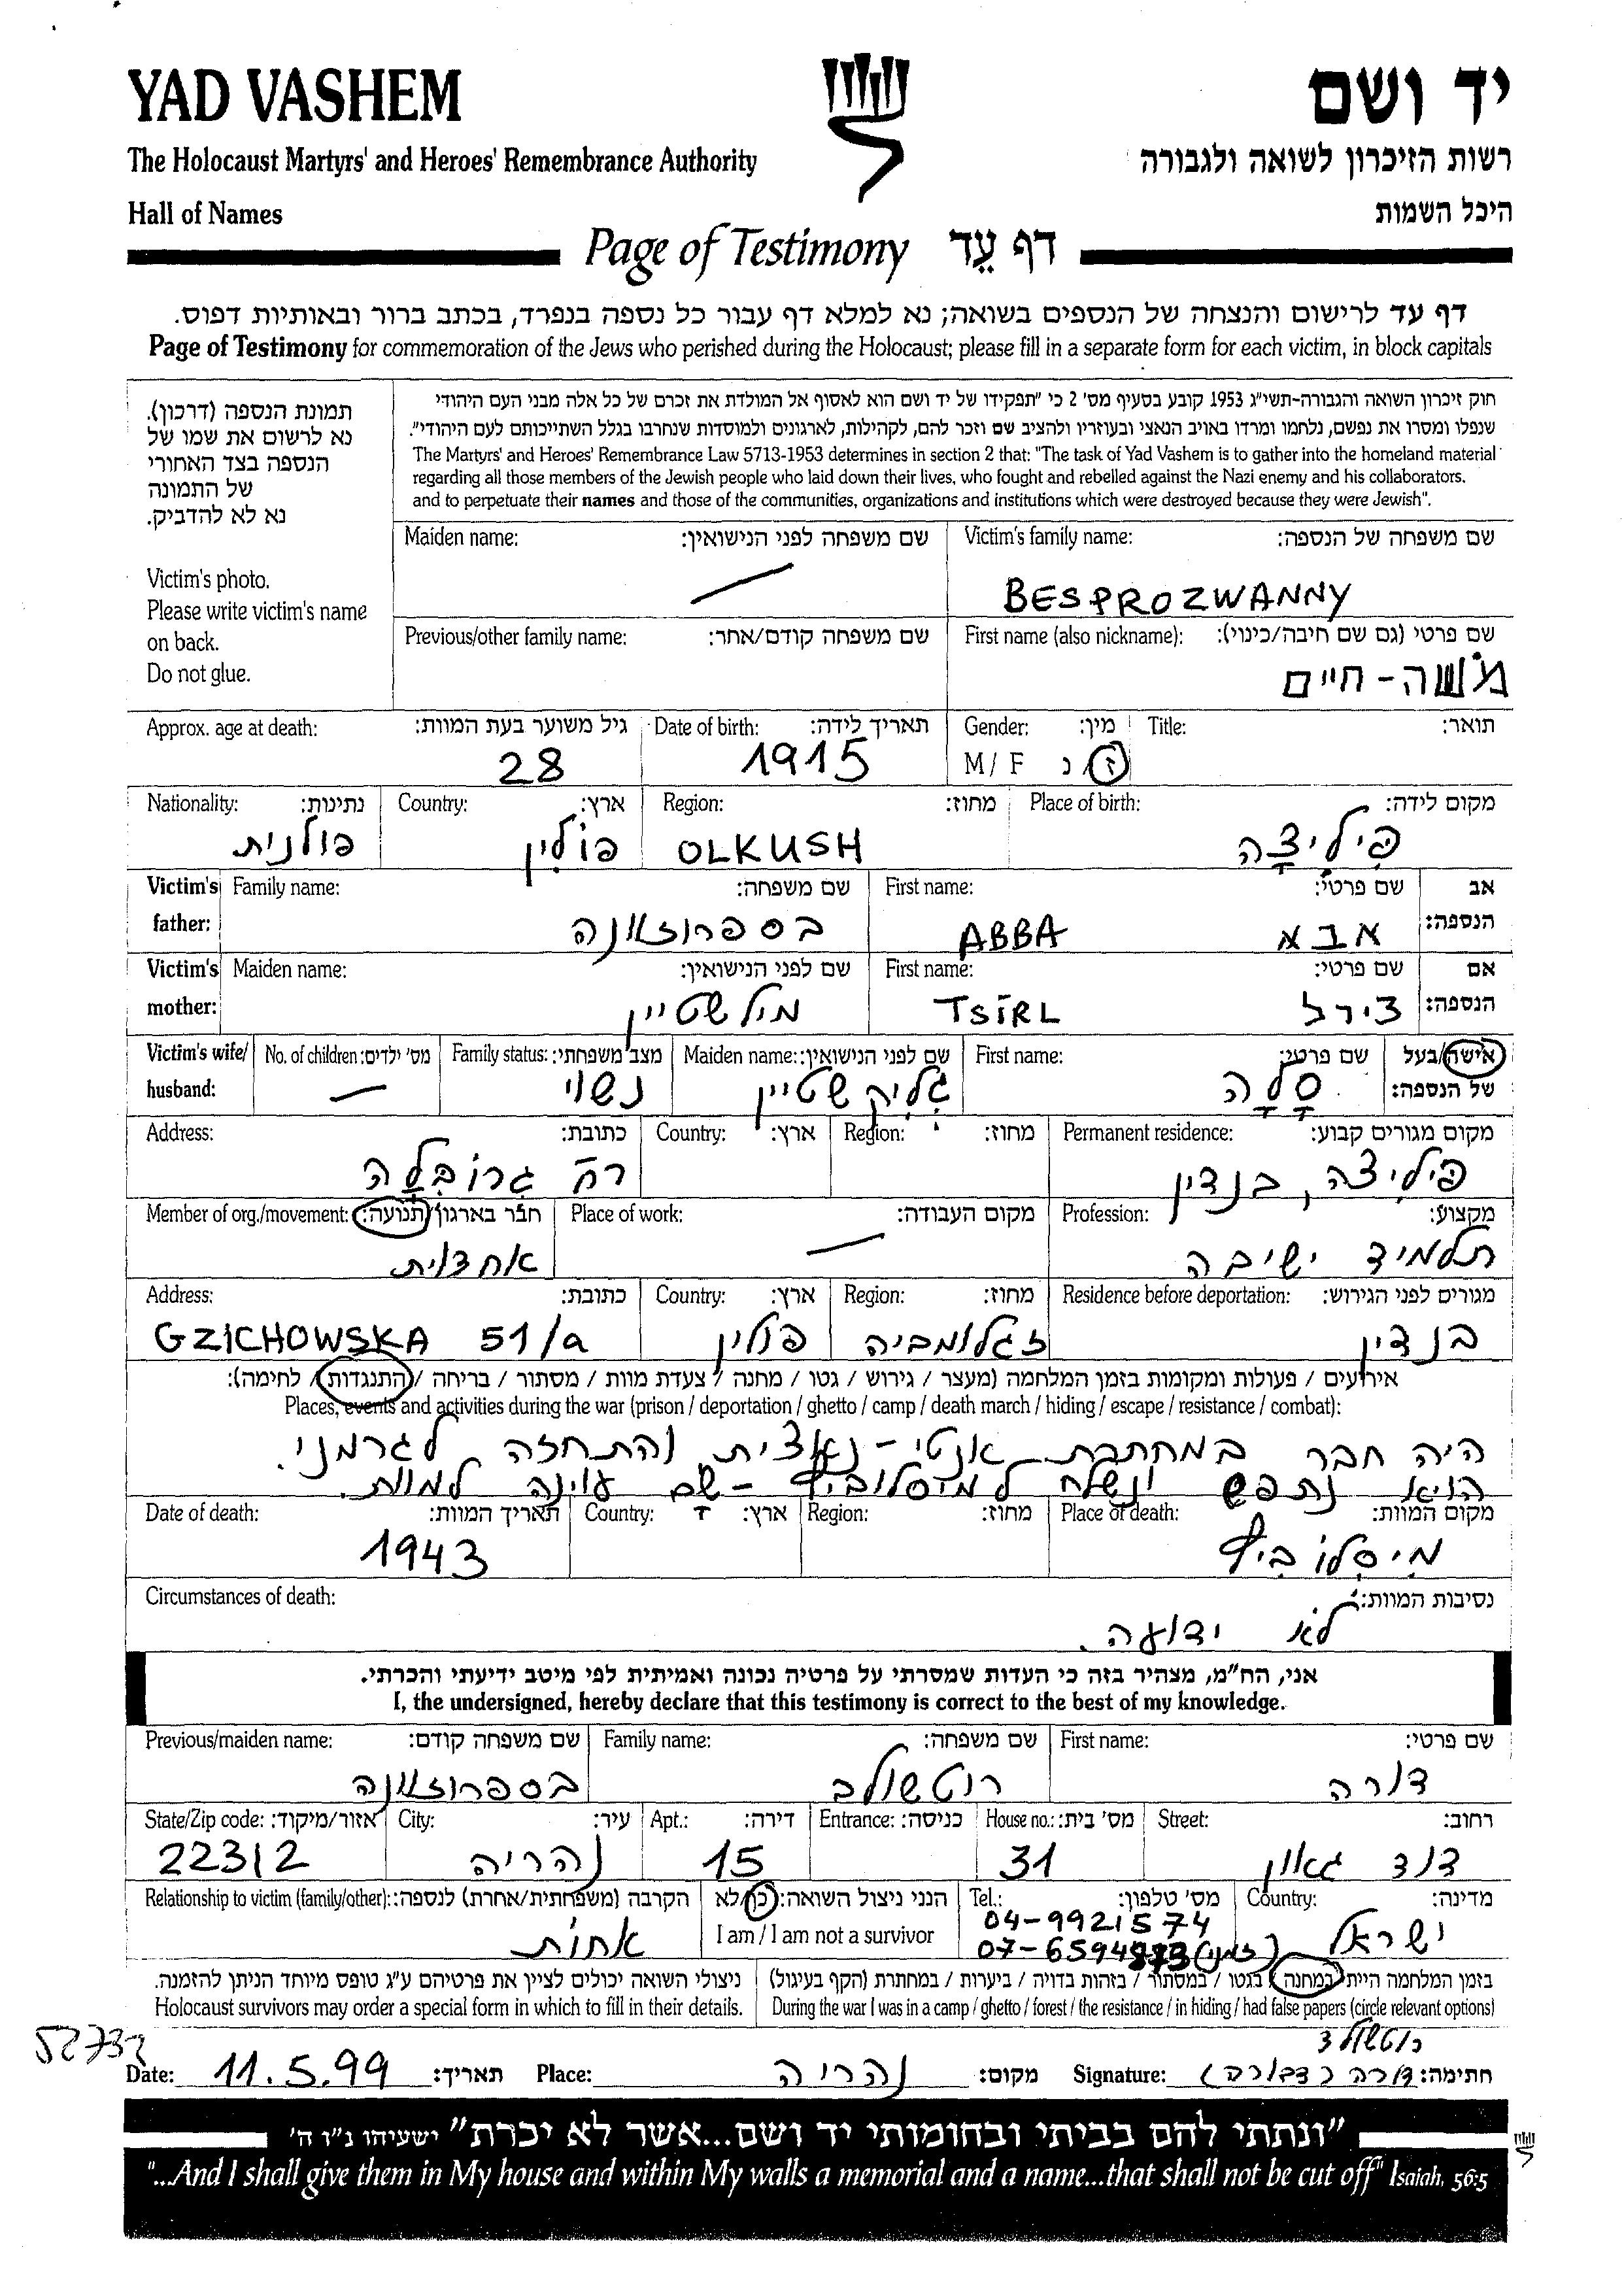 YAD VASHEM
יד ושם
The Holocaust Martyrs' and Heroes' Remembrance Authority
רשות הזיכרון לשואה ולגבורה
Hall of Names
היכל השמות
Page of Testimony דף עֵד
דף עד לרישום והנצחה של הנספים בשואה; נא למלא דף עבור כל נספה בנפרד, בכתב ברור ובאותיות דפוס.
Page of Testimony for commemoration of the Jews who perished during the Holocaust; please fill in a separate form for each victim, in block capitals
תמונת הנספה (דרכון).
נא לרשום את שמו של
הנספה בצד האחורי
של התמונה
נא לא להדביק.
Victim's photo.
Please write victim's name
on back.
Do not glue.
חוק זיכרון השואה והגבורה-תשי"ג 1953 קובע בסעיף מס' 2 כי "תפקידו של יד ושם הוא לאסוף אל המולדת את זכרם של כל אלה מבני העם היהודי
שנפלו ומסרו את נפשם, נלחמו ומרדו באויב הנאצי ובעוזריו ולהציב שם וזכר להם, לקהילות, לארגונים ולמוסדות שנחרבו בגלל השתייכותם לעם היהודי".
The Martyrs' and Heroes' Remembrance Law 5713-1953 determines in section 2 that: "The task of Yad Vashem is to gather into the homeland material
regarding all those members of the Jewish people who laid down their lives, who fought and rebelled against the Nazi enemy and his collaborators.
and to perpetuate their names and those of the communities, organizations and institutions which were destroyed because they were Jewish".
Victim's family name: שם משפחה של הנספה:
BESPROZWANNY
Maiden name: שם משפחה לפני הנישואין:
First name (also nickname): שם פרטי (גם שם חיבה/כינוי):
משה-חיים
Previous/other family name: שם משפחה קודם/אחר:
Title: תואר:
Gender: מין:
M / F ז נ
Date of birth: תאריך לידה:
1915
Approx. age at death: גיל משוער בעת המוות:
28
Place of birth: מקום לידה:
פיליצה
Region: מחוז:
OLKUSH
Country: ארץ:
פולין
Nationality: נתינות:
פולנית
Victim's father: אב הנספה:
First name: שם פרטי:
ABBA אבא
Family name: שם משפחה:
בספרוזוונה
Victim's mother: אם הנספה:
First name: שם פרטי:
TSIRL צירל
Maiden name: שם לפני הנישואין:
מילשטיין
Victim's wife/husband: אישה/בעל של הנספה:
First name: שם פרטי:
סלה
Maiden name: שם לפני הנישואין:
גליקשטיין
Family status: מצב משפחתי:
נשוי
No. of children: מס' ילדים:
Permanent residence: מקום מגורים קבוע:
פיליצה, בנדין
Region: מחוז:
Country: ארץ:
Address: כתובת:
רח' גרובלה
Profession: מקצוע:
תלמיד ישיבה
Place of work: מקום העבודה:
Member of org./movement: חבר בארגון/תנועה:
Residence before deportation: מגורים לפני הגירוש:
בנדין
Region: מחוז:
זגלומביה
Country: ארץ:
פולין
Address: כתובת:
GZICHOWSKA 51/a
אירועים / פעולות ומקומות בזמן המלחמה (מעצר / גירוש / גטו / מחנה / צעדת מוות / מסתור / בריחה / התנגדות / לחימה):
Places, events and activities during the war (prison / deportation / ghetto / camp / death march / hiding / escape / resistance / combat):
היה חבר במחתרת אנטי-נאצית והתחזה לגרמני.
הוא נתפש ונשלח למיסלוביץ - שם עוינה למוות.
Place of death: מקום המוות:
מיסלוביץ
Region: מחוז:
Country: ארץ:
Date of death: תאריך המוות:
1943
Circumstances of death: נסיבות המוות:
לא ידועה.
אני, הח"מ, מצהיר בזה כי העדות שמסרתי על פרטיה נכונה ואמיתית לפי מיטב ידיעתי והכרתי.
I, the undersigned, hereby declare that this testimony is correct to the best of my knowledge.
First name: שם פרטי:
דורה
Family name: שם משפחה:
רוטשולב
Previous/maiden name: שם משפחה קודם:
בספרוזוונה
Street: רחוב:
דוד גאון
House no.: מס' בית:
31
Entrance: כניסה:
Apt.: דירה:
15
City: עיר:
נהריה
State/Zip code: אזור/מיקוד:
22312
Country: מדינה:
ישראל
Tel.: מס' טלפון:
04-9921574
I am / I am not a survivor הנני ניצול השואה: כן/לא
Relationship to victim (family/other): הקרבה (משפחתית/אחרת) לנספה:
אחות
בזמן המלחמה הייתי במחנה / בגטו / במסתור / בזהות בדויה / ביערות / במחתרת (הקף בעיגול)
During the war I was in a camp / ghetto / forest / the resistance / in hiding / had false papers (circle relevant options)
ניצולי השואה יכולים לציין את פרטיהם ע"ג טופס מיוחד הניתן להזמנה.
Holocaust survivors may order a special form in which to fill in their details.
Date: 11.5.99 תאריך: Place: נהריה מקום: Signature: דורה (דבורה) חתימה:
"ונתתי להם בביתי ובחומותי יד ושם...אשר לא יכרת" ישעיהו נ"ו ה'
"...And I shall give them in My house and within My walls a memorial and a name...that shall not be cut off" Isaiah, 56:5